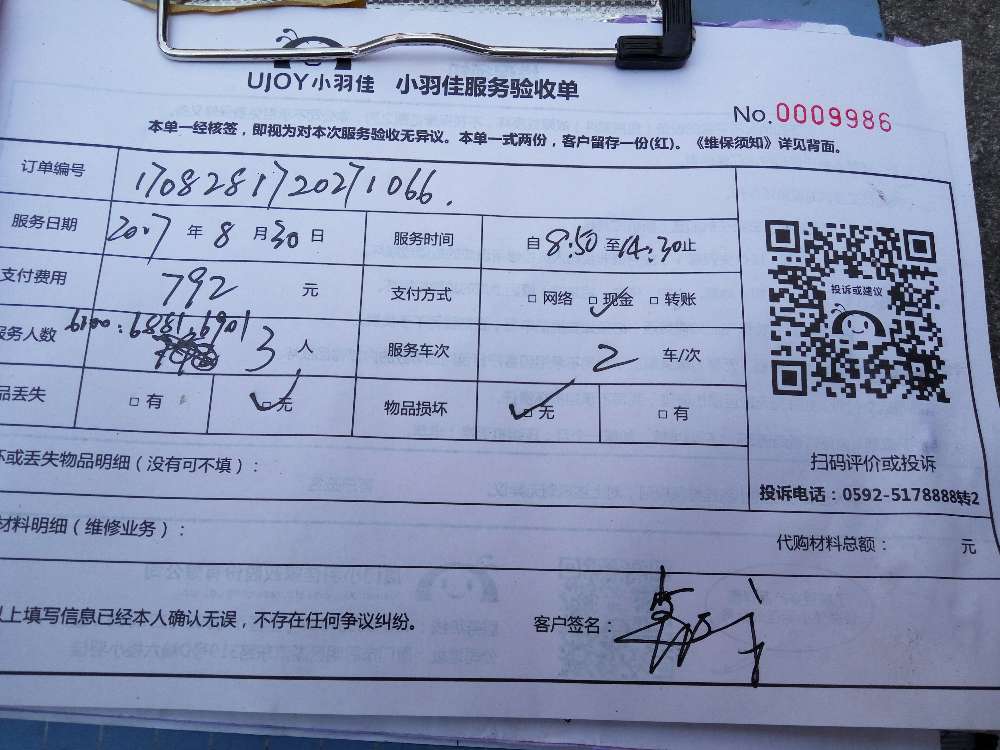 UJOY小羽佳 小羽佳服务验收单
No.0009986
本单一经核签，即视为对本次服务验收无异议。本单一式两份，客户留存一份(红)。《维保须知》详见背面。
订单编号 1708281720271066.
服务日期 2017年8月30日 服务时间 自8:50至14:30止
支付费用 792元 支付方式 □网络 □现金 □转账
服务人数 6100:6881.6901 3人 服务车次 2车/次
品丢失 □有 □无 物品损坏 □无 □有
投诉或建议
扫码评价或投诉
投诉电话：0592-5178888转2
坏或丢失物品明细（没有可不填）：
材料明细（维修业务）：
代购材料总额： 元
以上填写信息已经本人确认无误，不存在任何争议纠纷。 客户签名：